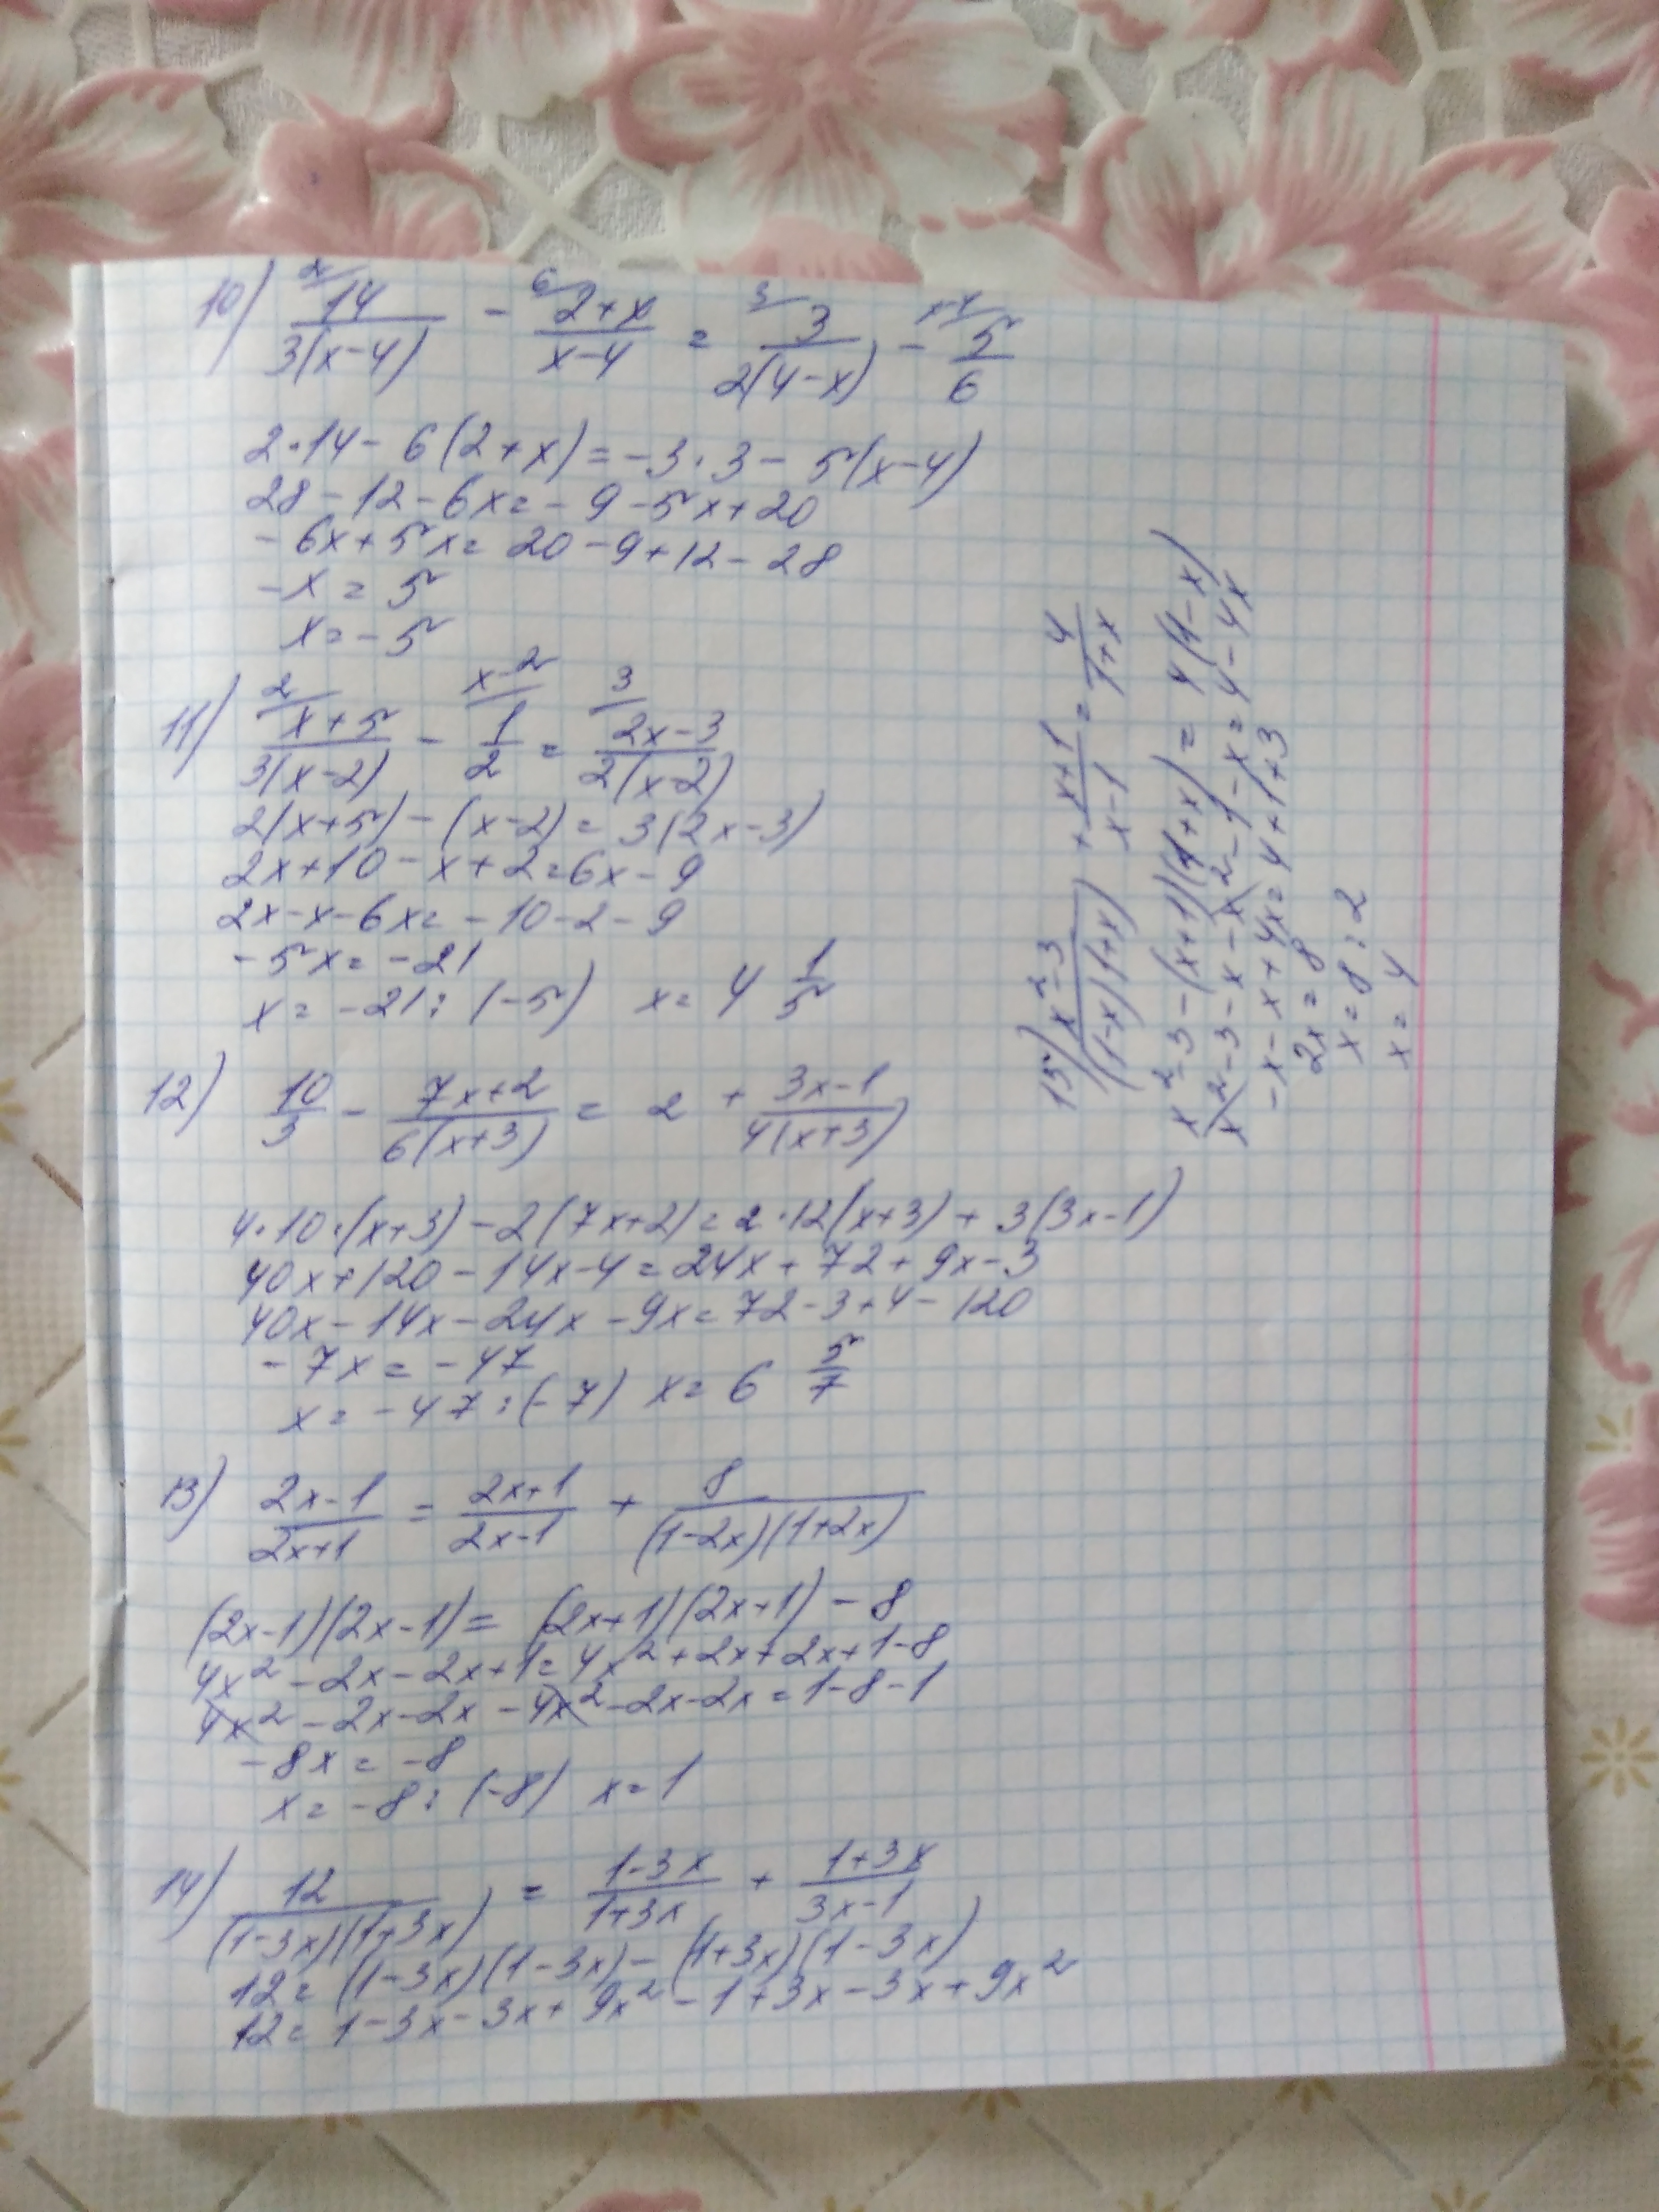 2 6 3 x-4
10) 14/(3(x-4)) - (2+x)/(x-4) = 3/(2(4-x)) - 5/6
2·14 - 6(2+x) = -3·3 - 5(x-4)
28 - 12 - 6x = -9 - 5x + 20
-6x + 5x = 20 - 9 + 12 - 28
-x = 5
x = -5
2 x-2 3
11) (x+5)/(3(x-2)) - 1/2 = (2x-3)/(2(x-2))
2(x+5) - (x-2) = 3(2x-3)
2x+10 - x + 2 = 6x - 9
2x - x - 6x = -10 - 2 - 9
-5x = -21
x = -21 : (-5) x = 4 1/5
12) 10/3 - (7x+2)/(6(x+3)) = 2 + (3x-1)/(4(x+3))
4·10·(x+3) - 2(7x+2) = 2·12(x+3) + 3(3x-1)
40x+120 - 14x - 4 = 24x + 72 + 9x - 3
40x - 14x - 24x - 9x = 72 - 3 + 4 - 120
-7x = -47
x = -47 : (-7) x = 6 5/7
13) (2x-1)/(2x+1) = (2x+1)/(2x-1) + 8/((1-2x)(1+2x))
(2x-1)(2x-1) = (2x+1)(2x+1) - 8
4x² - 2x - 2x + 1 = 4x² + 2x + 2x + 1 - 8
4x² - 2x - 2x - 4x² - 2x - 2x = 1 - 8 - 1
-8x = -8
x = -8 : (-8) x = 1
14) 12/((1-3x)(1+3x)) = (1-3x)/(1+3x) + (1+3x)/(3x-1)
12 = (1-3x)(1-3x) - (1+3x)(1-3x)
12 = 1 - 3x - 3x + 9x² - 1 + 3x - 3x + 9x²
15) (x²-3)/((1-x)(1+x)) + (x+1)/(x-1) = 4/(1+x)
x² - 3 - (x+1)(1+x) = 4(1-x)
x² - 3 - x - x² - 1 - x = 4 - 4x
-x - x + 4x = 4 + 1 + 3
2x = 8
x = 8 : 2
x = 4